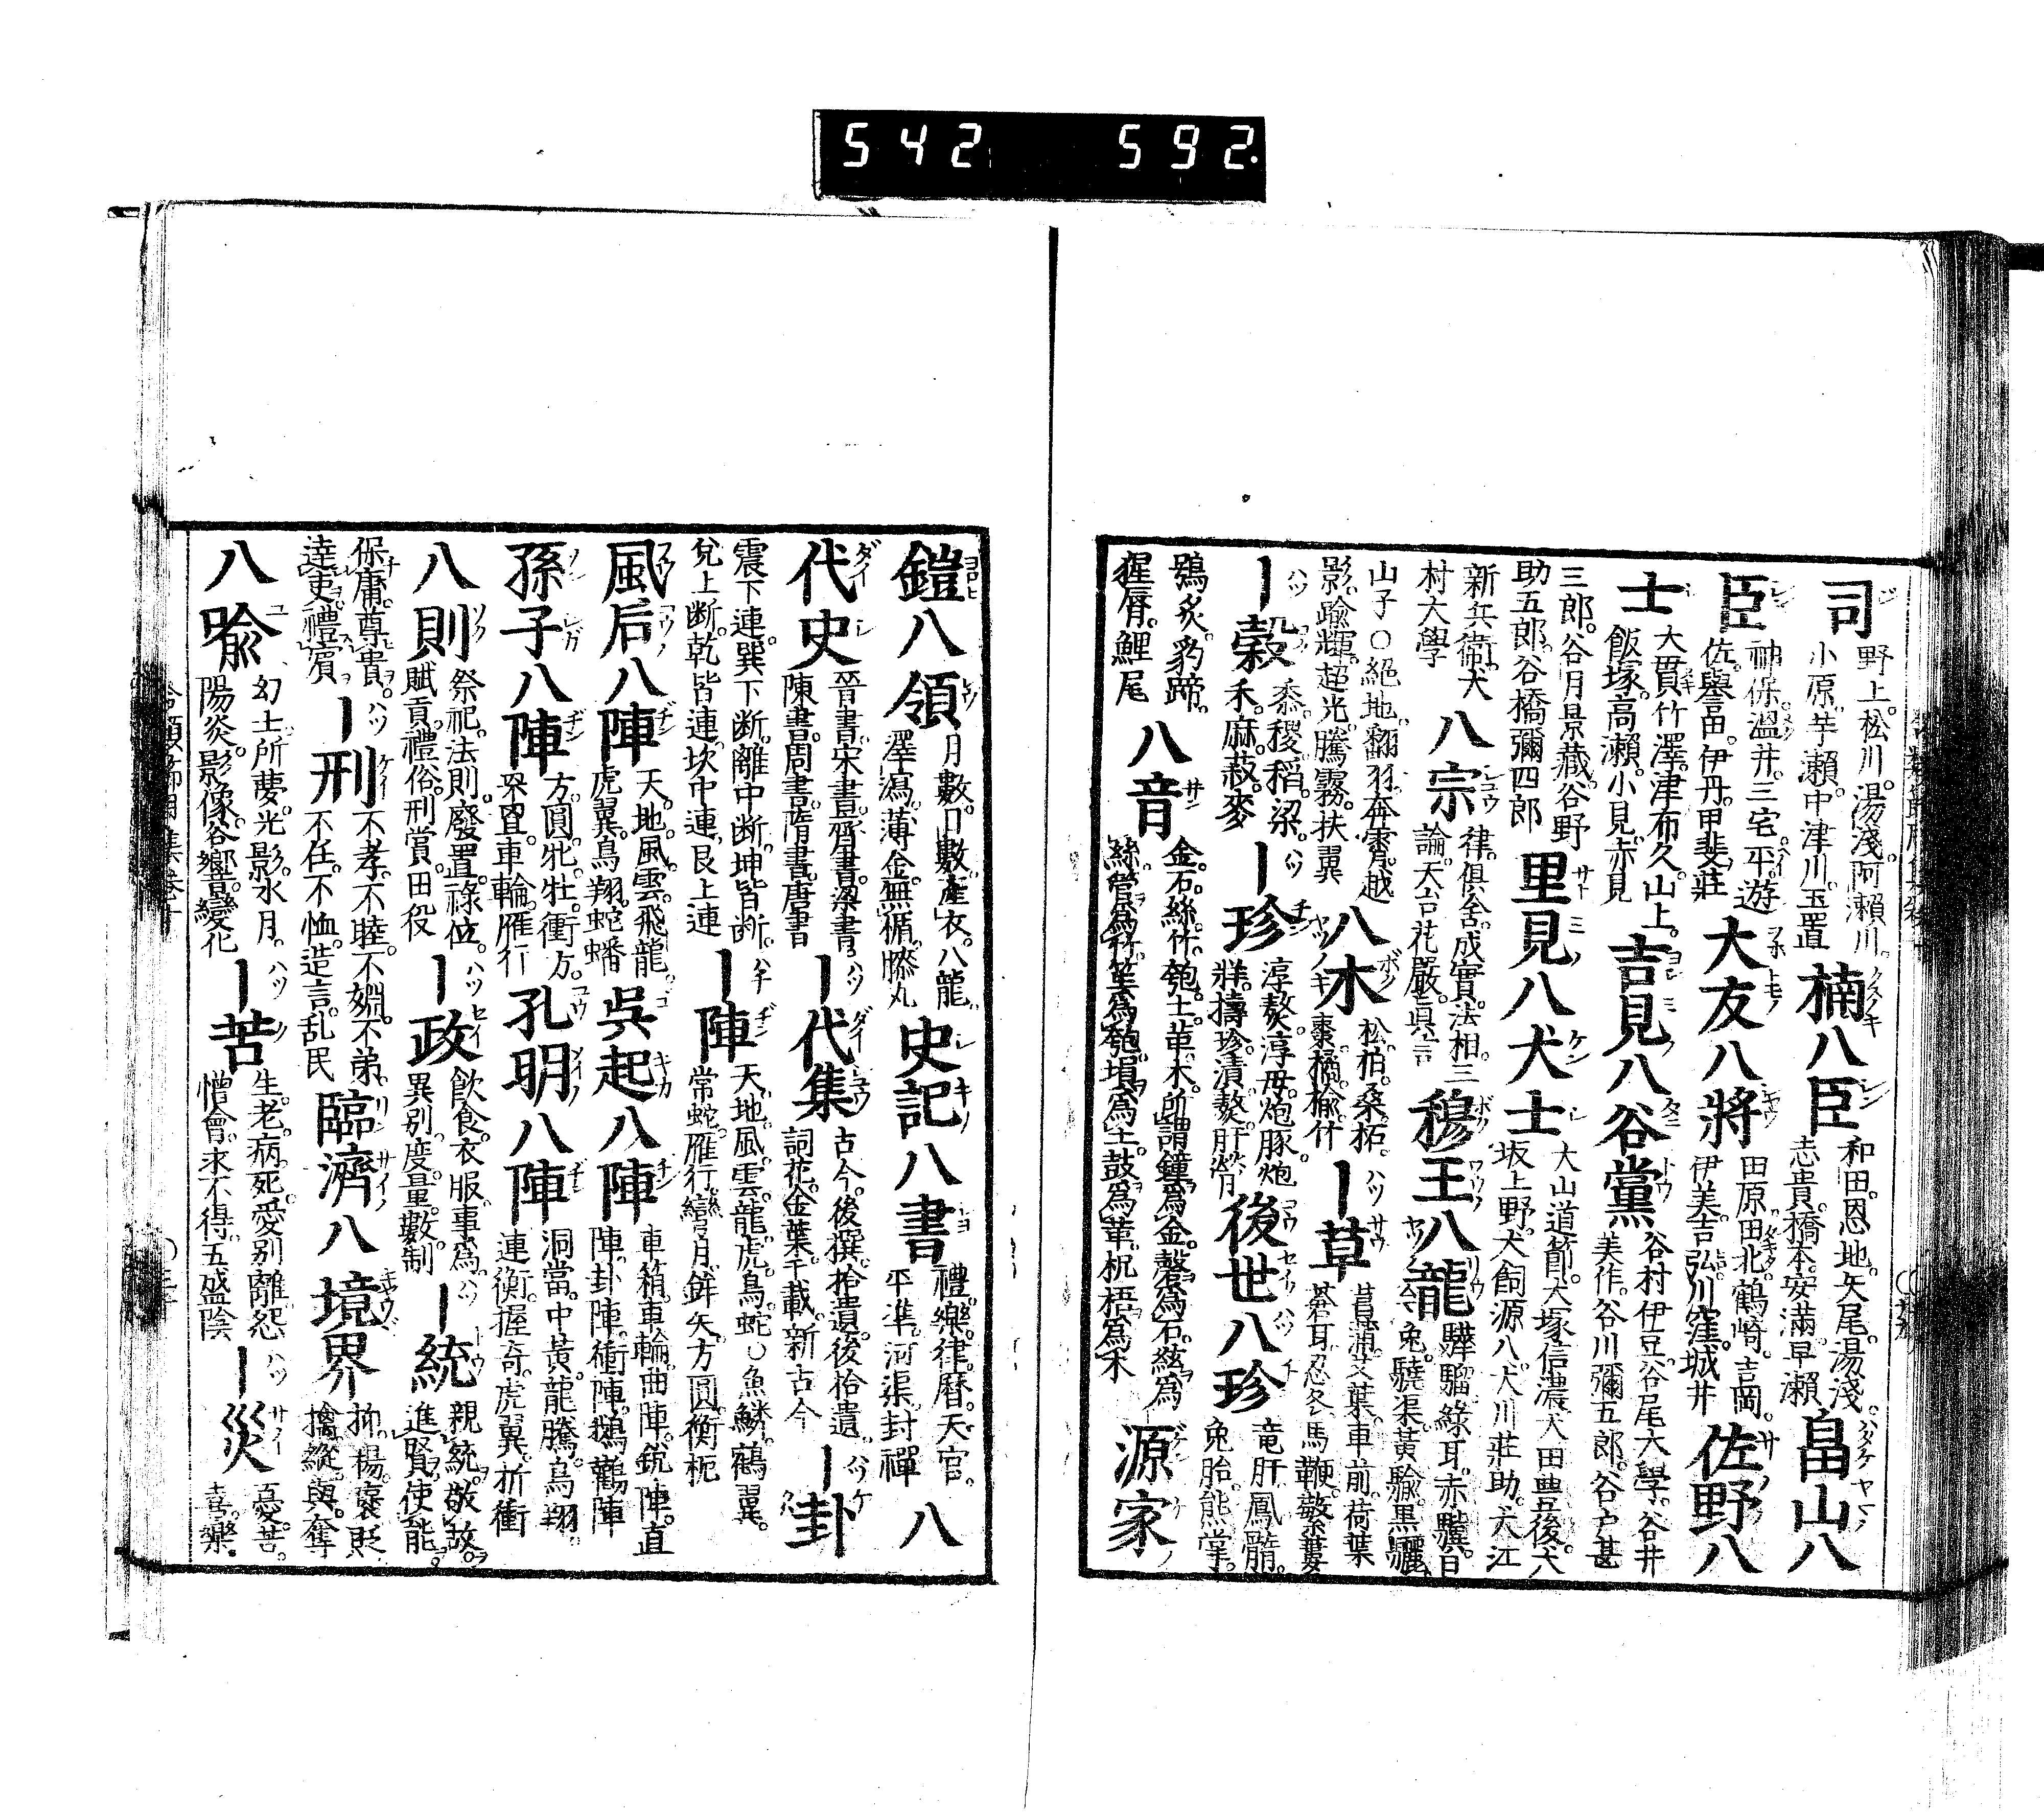 542 592
司 野上。松川。湯淺。阿瀬川。小原。芋瀬。中津川。玉置 楠八臣 和田。恩地。矢尾。湯淺。志貴。橋本。安滿。早瀬 畠山八
臣 神保。温井。三宅。平。遊佐。譽田。伊丹。甲斐莊 大友八將 田原。田北。鶴崎。吉岡。伊美。吉弘。川窪。城井 佐野八
士 大貫。竹澤。津布久。山上。飯塚。高瀬。小見。赤見 吉見八谷黨 谷村伊豆。谷尾大學。谷井美作。谷川彌五郎。谷戸甚
三郎。谷月景藏。谷野助五郎。谷橋彌四郎 里見八犬士 犬山道節。犬塚信濃。犬田豊後。犬坂上野。犬飼源八。犬川莊助。犬江
新兵衛。犬村大學 八宗 律。倶舍。成實。法相。三論。天台。花嚴。眞言 穆王八龍 驊騮。綠耳。赤驥。白兔。驍渠。黃驗。黒驪
山子○絶地。翻羽。奔霄。越影。踰輝。超光。騰霧。扶翼 八木 松。柏。桑。柘。棗。橘。榆。竹 ー草 菖蒲。艾葉。車前。荷葉。蒼耳。忍冬。馬鞭。蘩蔞
ー穀 黍。稷。稻。粱。禾。麻。菽。麥 ー珍 淳熬。淳母。炮豚。炮牂。擣珍。漬。熬。肝膋 後世八珍 竜肝。鳳髓。兔胎。熊掌。
鴞炙。豹蹄。猩脣。鯉尾 八音 金。石。絲。竹。匏。土。革。木。所謂鐘爲金。磬爲石。絃爲絲。管爲竹。笙爲匏。塤爲土。鼓爲革。柷梧爲木 源家
鎧八領 月數。日數。產衣。八龍。澤瀉。薄金。無楯。膝丸 史記八書 禮。樂。律。曆。天官。平準。河渠。封禪 八
代史 晉書。宋書。齊書。梁書。陳書。周書。隋書。唐書 ー代集 古今。後撰。拾遺。後拾遺。詞花。金葉。千載。新古今 ー卦
震下連。巽下断。離中断。坤皆断。兌上断。乾皆連。坎中連。艮上連 ー陣 天。地。風。雲。龍。虎。鳥。蛇○魚鱗。鶴翼。常蛇。雁行。彎月。鉾矢。方圓。衡軛
風后八陣 天。地。風。雲。飛龍。虎翼。鳥翔。蛇蟠 吳起八陣 車箱。車輪。曲陣。銳陣。直陣。卦陣。衝陣。鵝鸛陣
孫子八陣 方。圓。牝。牡。衝方。罘罝。車輪。雁行 孔明八陣 洞當。中黃。龍騰。鳥翔。連衡。握奇。虎翼。折衝
八則 祭祀。法則。廢置。祿位。賦貢。禮俗。刑賞。田役 ー政 飲食。衣服。事爲。異別。度。量。數。制 ー統 親統。敬故。進賢。使能。
保庸。尊貴。達吏。禮賓 ー刑 不孝。不睦。不婣。不弟。不任。不恤。造言。乱民 臨濟八境界 抑。揚。褒。貶。擒。縱。與。奪
八喩 幻士所夢。光影。水月。陽炎。影像。谷響。變化 ー苦 生。老。病。死。愛別離。怨憎會。求不得。五盛陰 ー災 憂。苦。喜。樂。